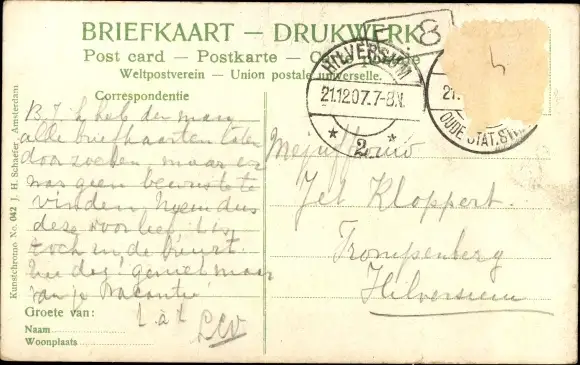 BRIEFKAART — DRUKWERK
Post card — Postkarte —
Weltpostverein — Union postale universelle.
Correspondentie
HILVERSUM
21.12.07. 7-8 V.
* 2 *
21.
OUDE STAT. ST
8
4
B. J. Ik heb der man
alle briefkaarten laten
doorzoeken, maar er
was geen bewuste te
vinden. Neem dus
deze voor lief. 't Is
toch in de buurt.
dag! geniet maar
van je vacantie
t. à t.
Groete van:
Naam
Woonplaats
Mejuffrouw
Jet Kloppert.
Trompenberg
Hilversum
Kunstchromo No. 042 J. H. Schaefer, Amsterdam